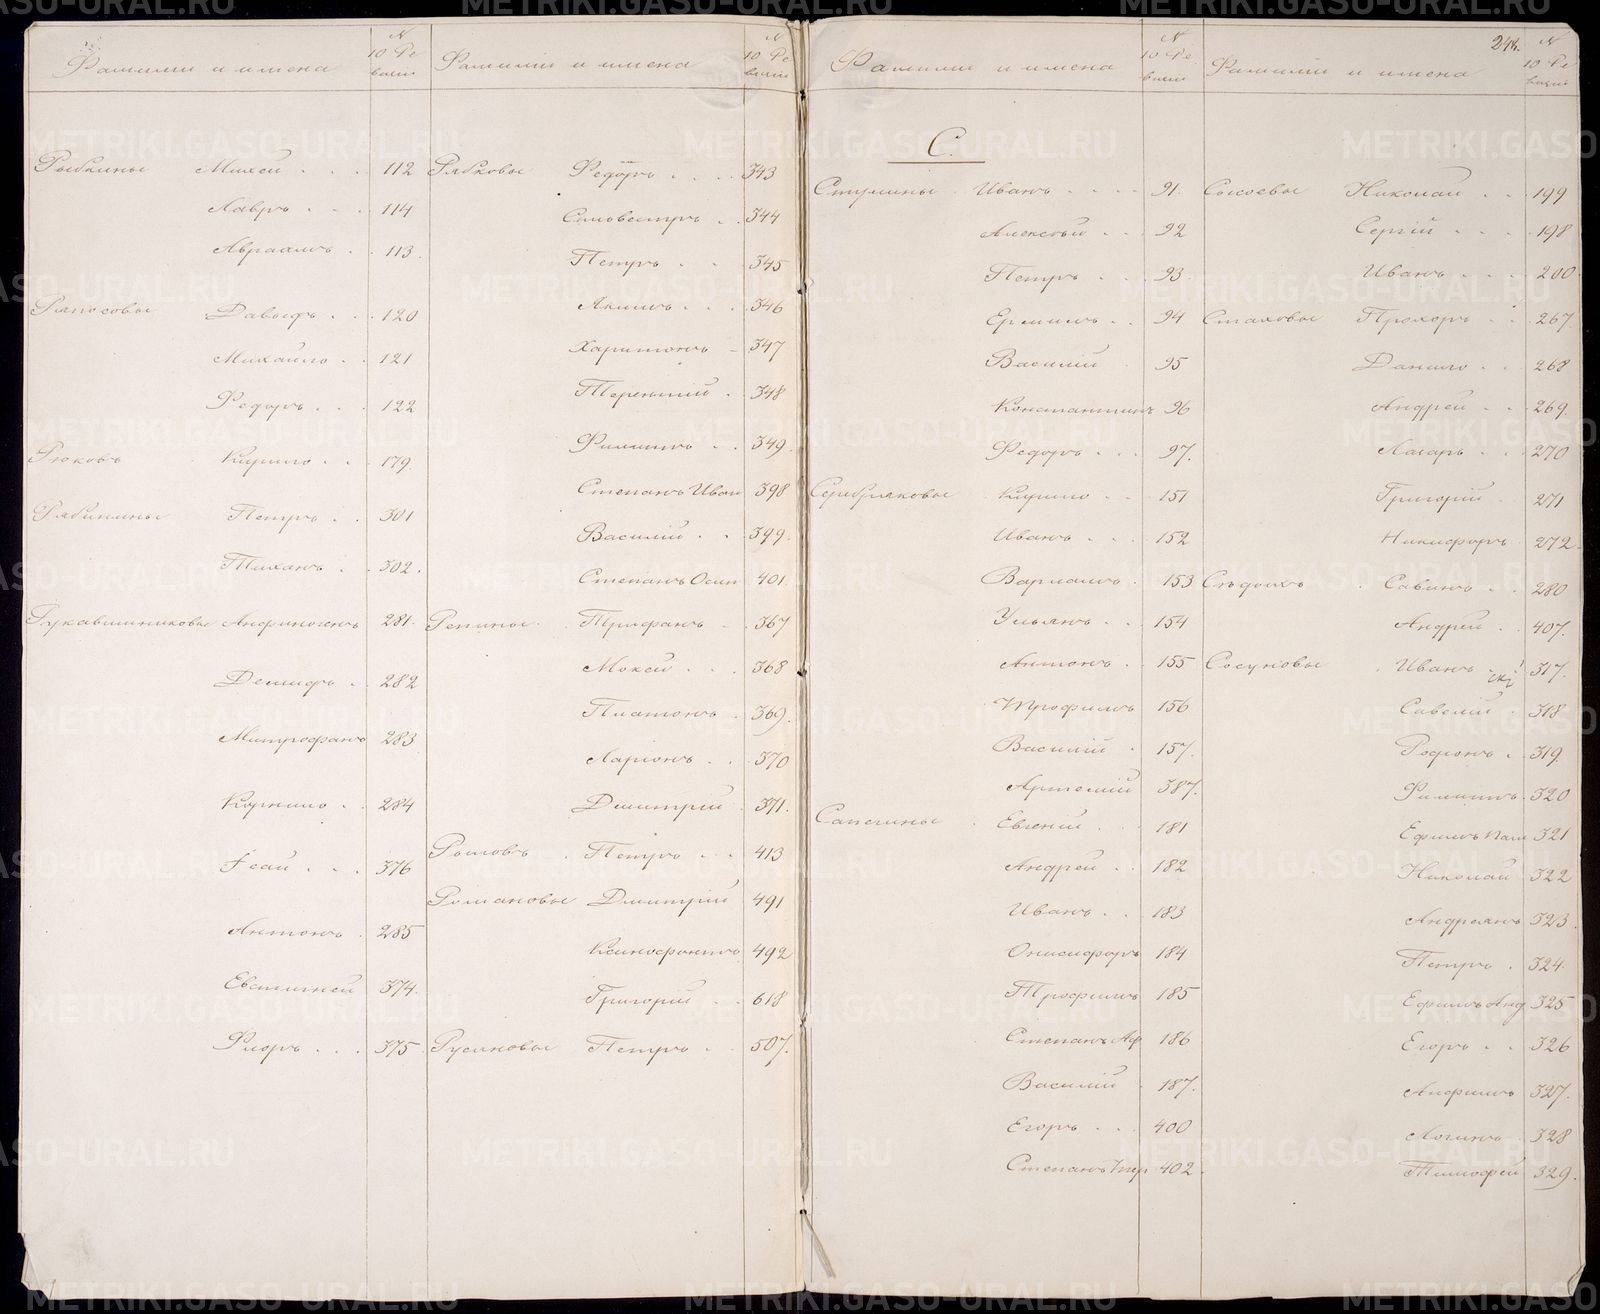 Фамилии и имена
N 10 Ревизии
Рыбкины Михей . . . . 112
Лавръ . . . 114
Авраамъ . . 113.
Ряпосовы Давыдъ . . . 120
Михайло . . 121
Федоръ . . . 122
Рюковъ Кирило . . . 179.
Рябинины Петръ . . 301
Тиханъ . . 302.
Рукавишниковы Анфиногенъ 281.
Демидъ . . 282
Митрофанъ 283
Корнило . . 284
Ѳсай . . . 376
Антонъ . 285
Евстигней 374.
Флоръ . . . 375
Фамилии и имена
N 10 Ревизии
Рябковы Ѳедоръ . . . . 343
Силовестръ . . 344
Петръ . . 345
Акимъ . . . 346
Харитонъ – 347
Терентий . 348
Филипъ . . 349.
Степанъ Иван 398
Василий . . 399.
Степанъ Осип 401
Репины . Трифанъ – 367
Мокей . . . 368
Платонъ . 369.
Ларионъ . . 370
Дмитрий . 371.
Рыловъ . Петръ . . . 413
Романовы Дмитрий 491
Ксинофонтъ 492
Григорий . . 618
Русиновы Петръ . . 507.
Фамилии и имена
N 10 Ревизии
С.
Стулины . Иванъ . . . . 91.
Алексѣй . . . 92
Петръ . . . 93
Ермилъ . . 94
Василий . 95
Константинъ 96
Федоръ . . . 97.
Серебряковы Кирило . . 151
Иванъ . . . 152
Варламъ . 153
Ульянъ . . 154
Антонъ . . 155
Трофимъ 156
Василий . 157.
Артемий 387.
Сапегины . Евгений . . . 181
Андрей . . 182
Иванъ . . . 183
Онисифоръ 184
Трофимъ 185
Степанъ Аф 186
Василий . 187.
Егоръ . . . 400
Степанъ 402.
248. N
Фамилии и имена
10 Ревизии
Сысоевы Николай . . 199
Сергий . . . . 198
Иванъ . . . . 200
Стаховы Прохоръ . . 267.
Данило . . . 268
Андрей . . . 269.
Лазарь . . . 270
Григорий . 271
Никифоръ 272.
Сѣдыхъ . Савинъ . . 280
Андрей . . 407.
Сосуновы . Иванъ . . 317.
Савелий . 318
Родионъ . 319.
Филипъ . 320
Ефимъ Пат 321
Николай 322
Андреянъ 323.
Петръ . 324.
Ефимъ Анд 325
Егоръ . . 326
Анфимъ 327.
Логинъ . 328
Тимофей 329.